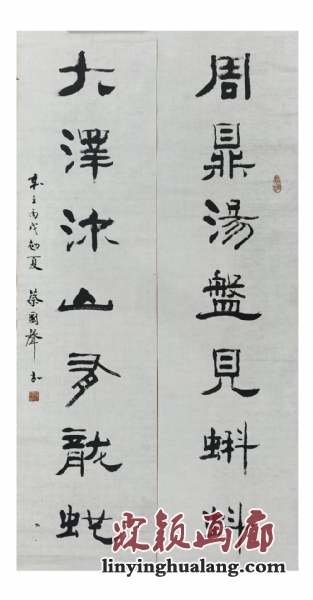 周鼎湯盤見蝌蚪
大澤深山多龍虵
丙戌初夏 蔡國聲
霖颖画廊
linyinghualang.com